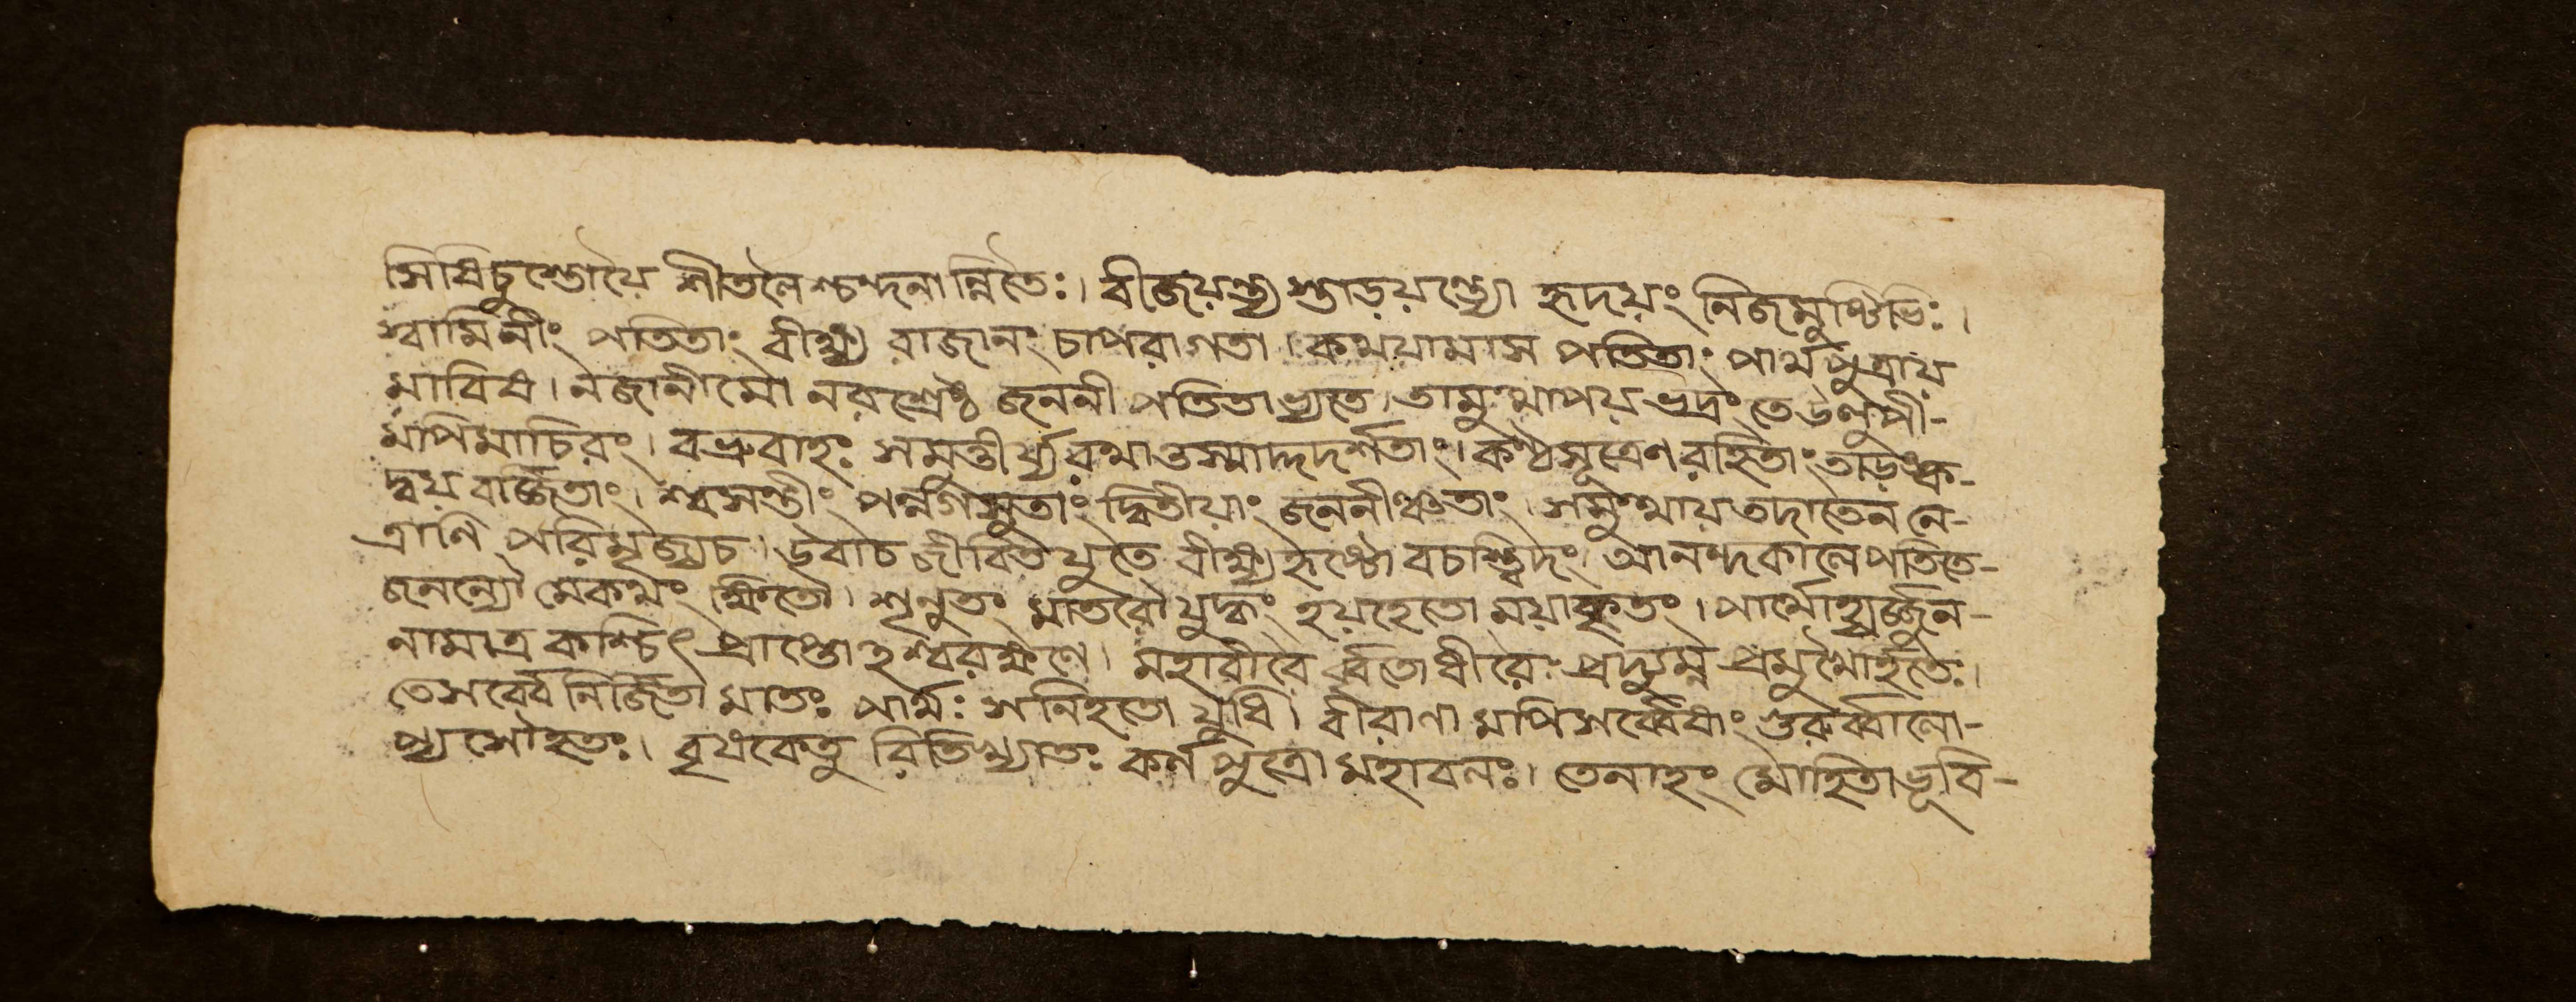 সিষিচুস্তোয়ৈ শীতলৈশ্চন্দনান্নিতৈঃ। বীজয়ন্ত্যস্তাড়য়ন্ত্যো হৃদয়ং নিজমুষ্টিভিঃ।
স্বামিনীং পতিতাং বীক্ষ্য রাজানং চাপরাগতা। কথয়ামাস পতিতাং পার্থপুত্রায়
মাবিষ। নজানীমো নরশ্রেষ্ঠ জননী পতিতাভ্যতে। তামুত্থাপয় ভদ্রং তে উলুপী-
মপিমাচিরং। বভ্রুবাহঃ সমুত্তীর্য্য রথাত্তস্মাদ্দদর্শতাং। কণ্ঠসূত্রেণ রহিতাং তাড়ঙ্ক-
দ্বয় বর্জ্জিতাং। শ্বসন্তীং পন্নগসুতাং দ্বিতীয়াং জননীঞ্চতাং। সমুত্থায় তদাতেন নে-
ত্রাণি পরিমৃজ্যচ। উবাচ জীবিতযুতে বীক্ষ্য হৃষ্টো বচস্ত্বিদং। আনন্দকালে পতিতে-
জনন্যৌ মেকথং ক্ষিতৌ। শৃনুতং মাতরৌ যুদ্ধং হয়হেতো ময়াকৃতং। পার্থোহ্যর্জ্জুন-
নামাত্র কশ্চিৎ প্রাপ্তোহশ্বরক্ষণে। মহাবীরৈর্ব্বৃতো ধীরৈঃ প্রদ্যুম্ন প্রমুখৈর্হুতৈঃ।
তেসর্ব্বে নির্জিতা মাতঃ পার্থঃ সনিহতো যুধি। বীরাণামপিসর্ব্বেষাং গুরুর্ব্বালো-
প্যসৌহতঃ। বৃষকেতু রিতিখ্যাতঃ কর্ন পুত্রো মহাবলঃ। তেনাহং মোহিতা ভূবি-